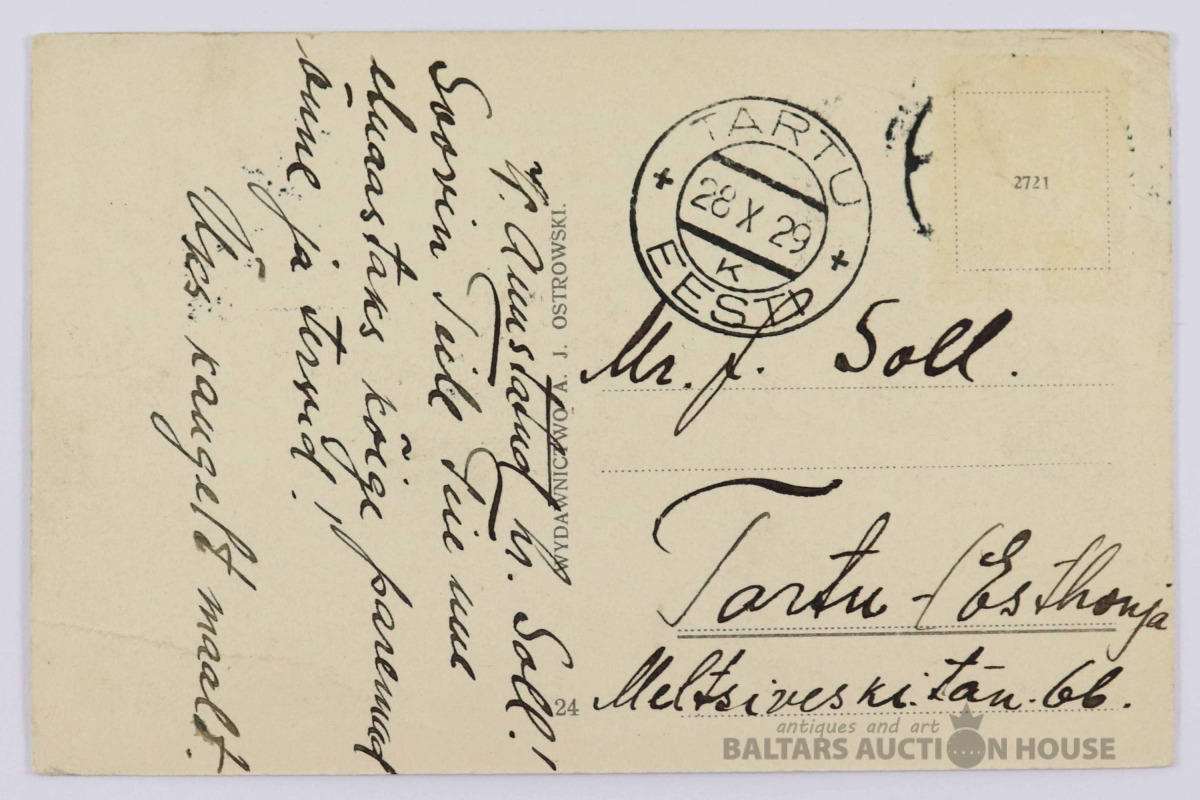 V. Auustatud hr. Soll!
Soovin Teile Teie uue
eluaastaks kõige paremad
õnne ja tervid.
Üks kaugelt maalt.
WYDAWNICZWO A. J. OSTROWSKI.
24
TARTU
28 X 29
K
EESTI
2721
Mr. J. Soll.
Tartu - (Esthonja
Meltsiveski tän. 6b.
antiques and art
BALTARS AUCTION HOUSE